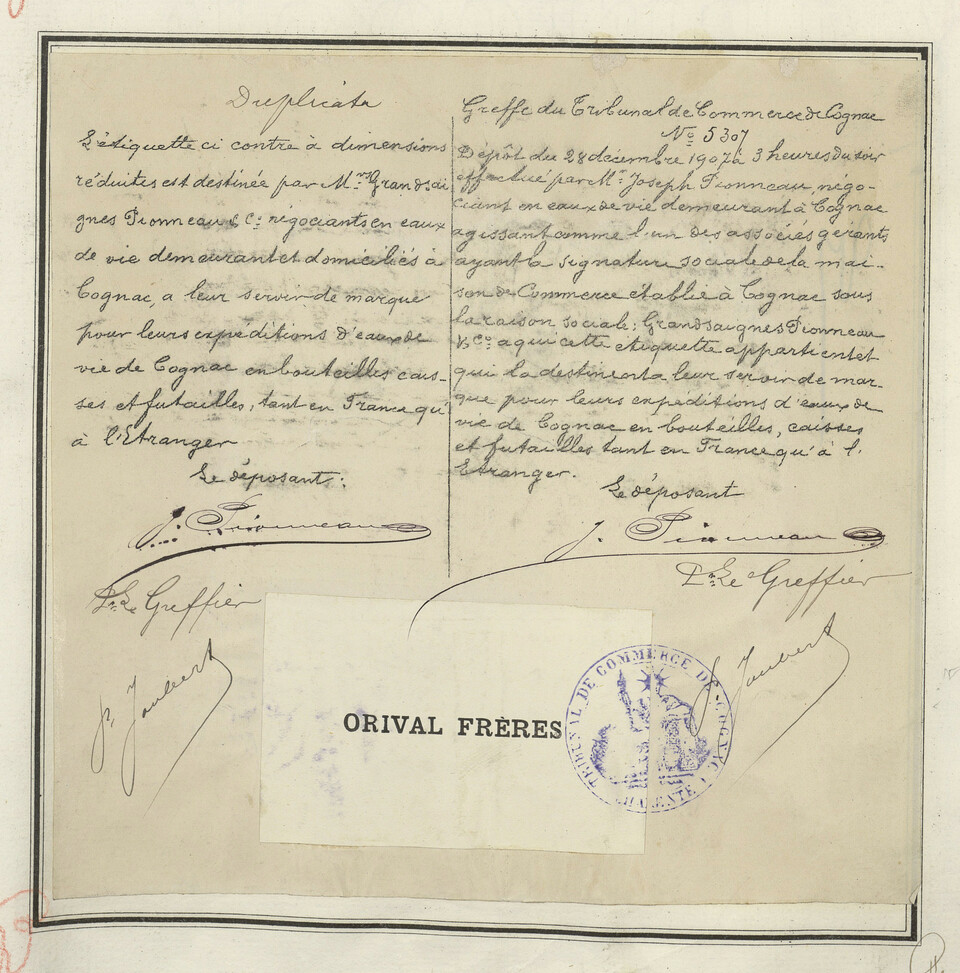 Duplicata
L'étiquette ci contre à dimensions
réduites est destinée par Mrs Grandsai
gnes Pionneau & Co négociants en eaux
de vie demeurant et domiciliés à
Cognac, a leur servir de marque
pour leurs expéditions d'eaux de
vie de Cognac en bouteilles cais-
ses et futailles, tant en France qu'
à l'Etranger
Le déposant:
J. Pionneau
Pr Le Greffier
P. Joubert
Greffe du Tribunal de Commerce de Cognac
No 5307
Dépôt du 28 décembre 1907 à 3 heures du soir
effectué par Mr. Joseph Pionneau, négo-
ciant en eaux de vie demeurant à Cognac
agissant comme l'un des associés gérants
ayant la signature sociale de la mai-
son de Commerce etablie à Cognac sous
la raison sociale: Grandsaignes Pionneau
& Co a qui cette etiquette appartient et
qui la destinent a leur servir de mar-
que pour leurs expeditions d'eaux de
vie de Cognac en bouteilles, caisses
et futailles tant en France qu'à l'
Etranger.
Le déposant
J. Pionneau
Pr Le Greffier
Joubert
ORIVAL FRÈRES
TRIBUNAL DE COMMERCE DE COGNAC
CHARENTE